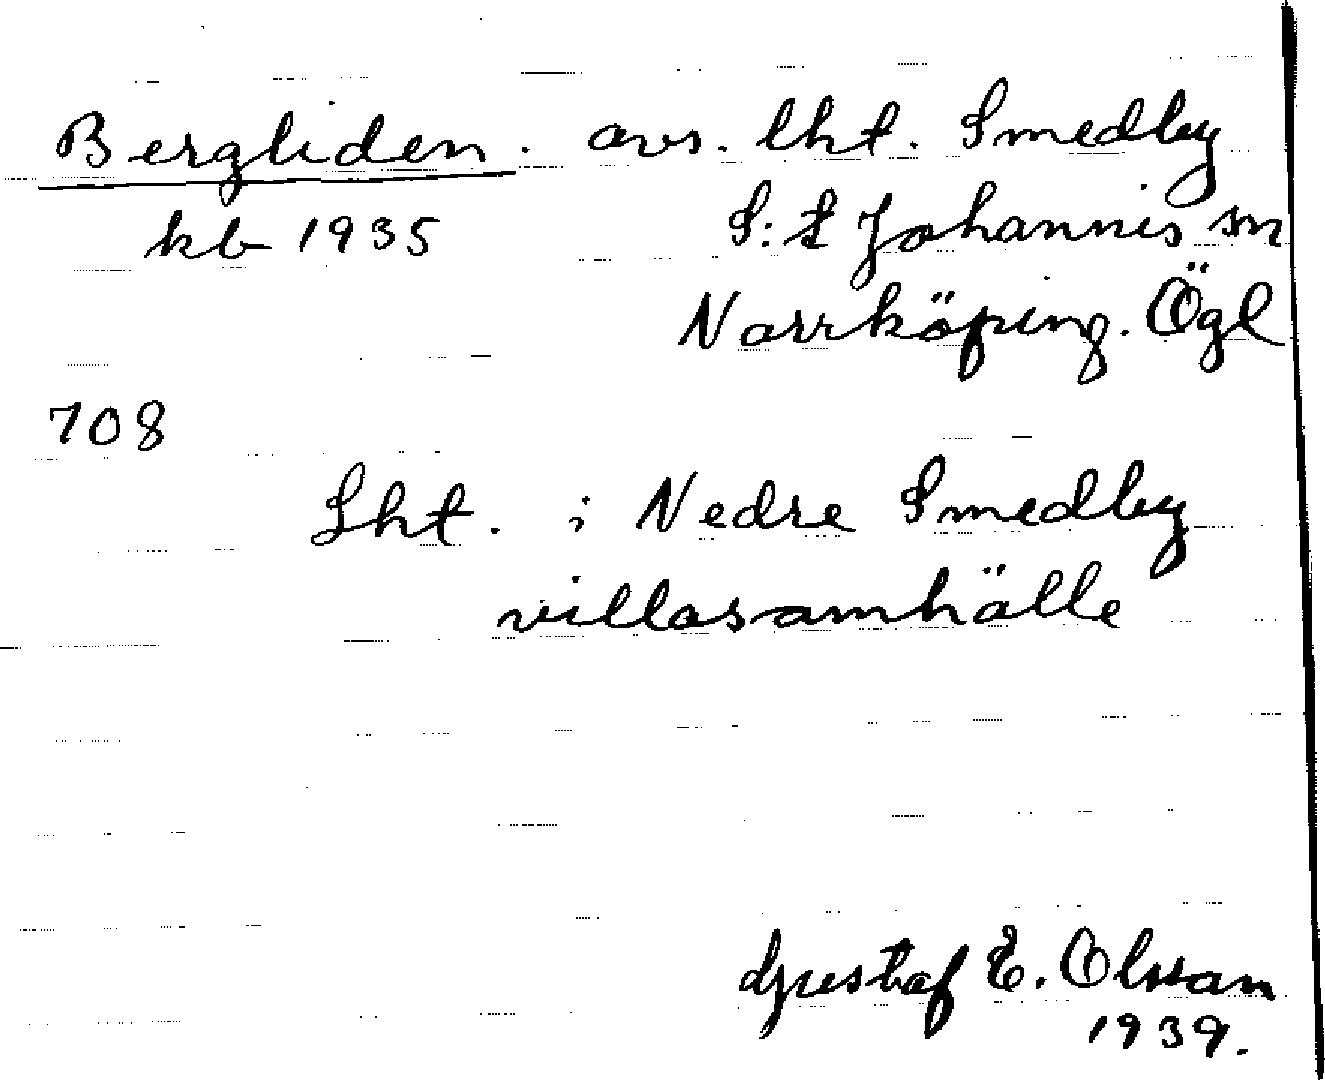 Bergliden. avs. lht. Smedby
kb 1935 S:t Johannis sn
Norrköping. Ögl
708
Lht. i Nedre Smedby
villasamhälle
Gustaf E. Olsson
1939.